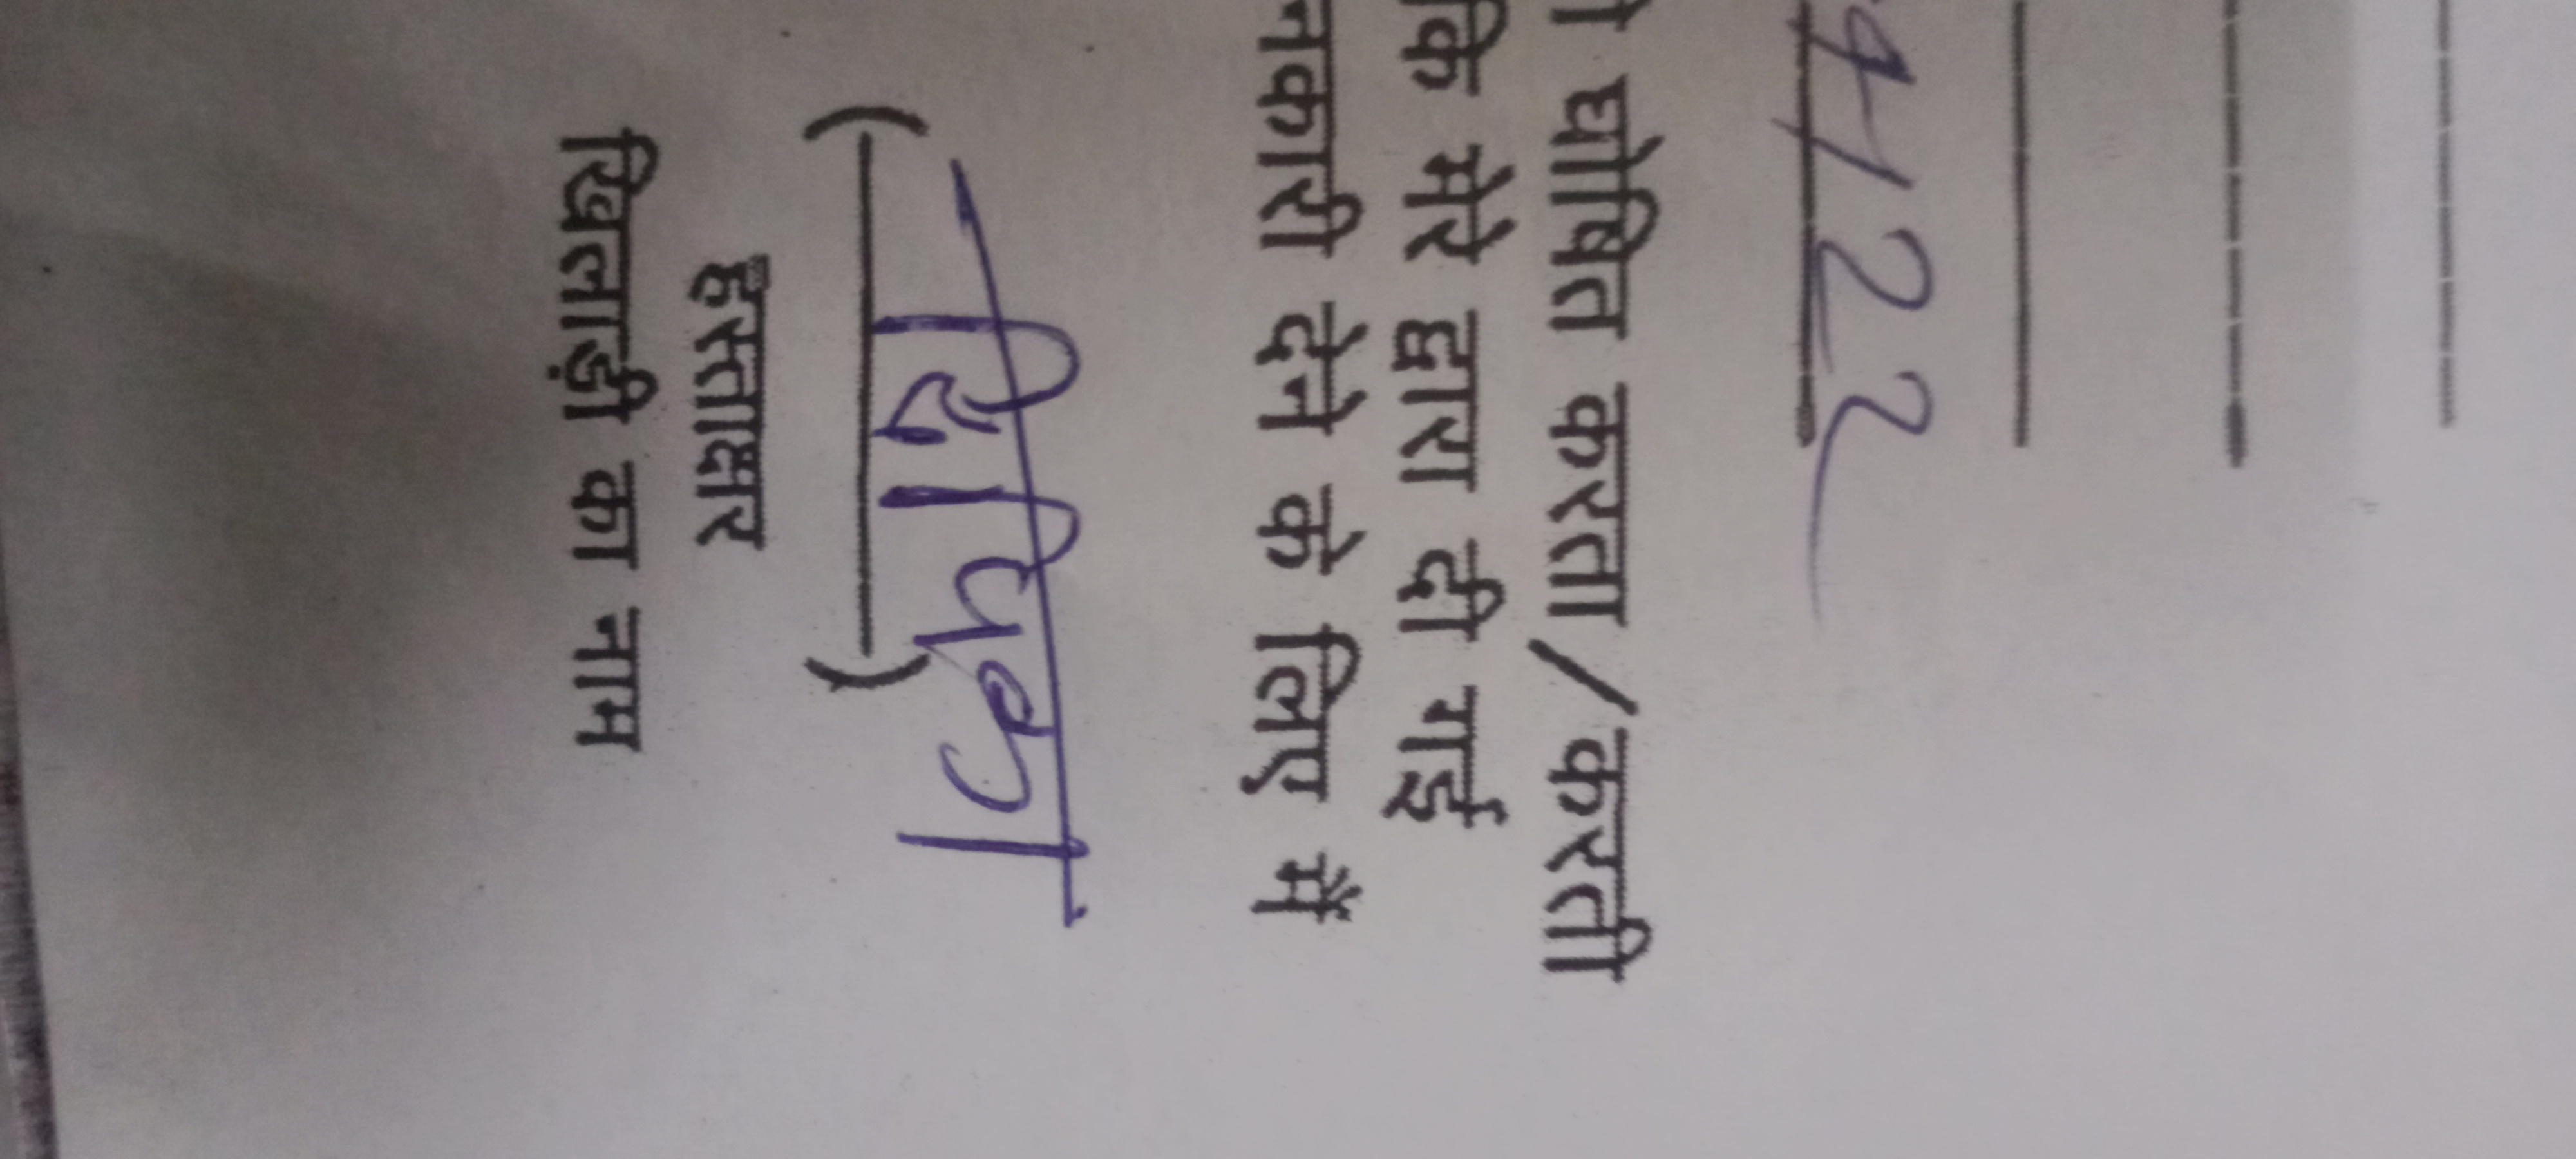 4122
घोषित करता/करती
कि मेरे द्वारा दी गई
नकारी देने के लिए में
(
)
हस्ताक्षर
खिलाड़ी का नाम